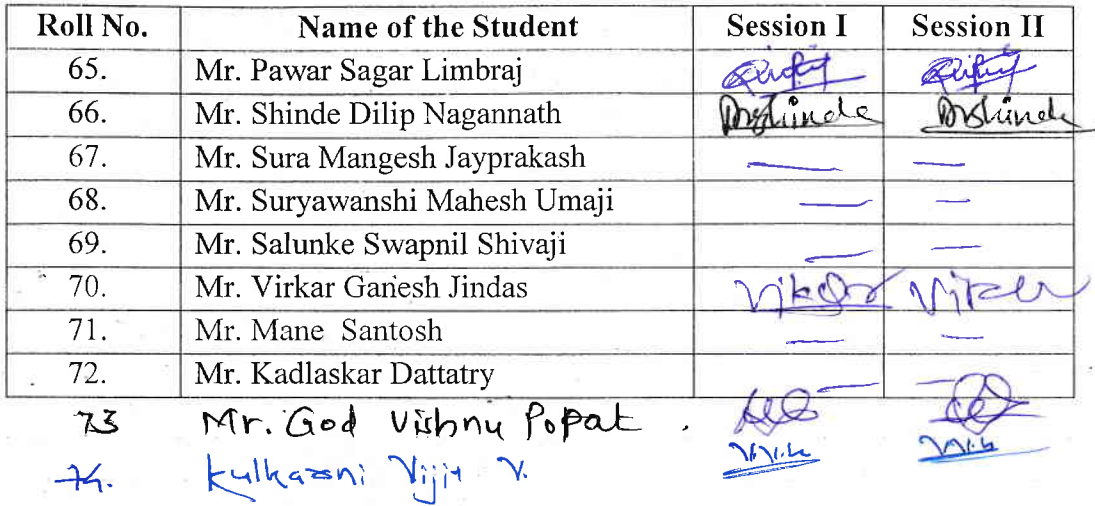 Roll No. Name of the Student Session I Session II
65. Mr. Pawar Sagar Limbraj
66. Mr. Shinde Dilip Nagannath Drshinde Drshinde
67. Mr. Sura Mangesh Jayprakash — —
68. Mr. Suryawanshi Mahesh Umaji — —
69. Mr. Salunke Swapnil Shivaji — —
70. Mr. Virkar Ganesh Jindas
71. Mr. Mane Santosh — —
72. Mr. Kadlaskar Dattatry — —
73 Mr. God Vishnu Popat .
74. Kulkarni Vijit V.